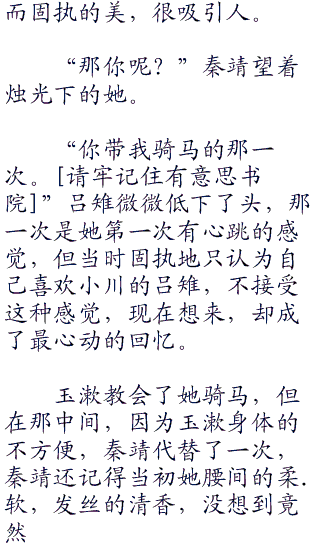 而固执的美，很吸引人。
“那你呢？”秦靖望着
烛光下的她。
“你带我骑马的那一
次。[请牢记住有意思书
院]”吕雉微微低下了头，那
一次是她第一次有心跳的感
觉，但当时固执地只认为自
己喜欢小川的吕雉，不接受
这种感觉，现在想来，却成
了最心动的回忆。
玉漱教会了她骑马，但
在那中间，因为玉漱身体的
不方便，秦靖代替了一次，
秦靖还记得当初她腰间的柔.
软，发丝的清香，没想到竟
然